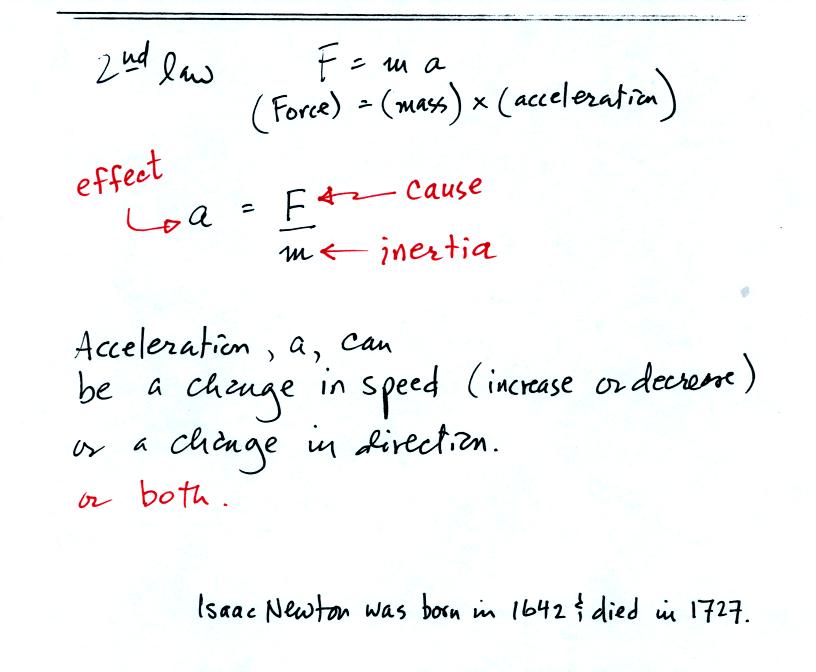 2nd law F = m a
(Force) = (mass) × (acceleration)
effect
a = F ← cause
m ← inertia
Acceleration, a, can
be a change in speed (increase or decrease)
or a change in direction.
or both.
Isaac Newton was born in 1642 & died in 1727.